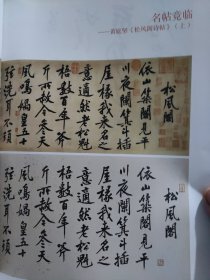 名帖竞临
——黄庭坚《松风阁诗帖》（上）
松風閣
依山築閣見平
川夜闌箕斗插
屋椽我来名之
意適然老松魁
梧數百年斧
斤所赦今參天
風鳴媧皇五十
絃洗耳不須
松風閣
依山築閣見平
川夜闌箕斗插
屋椽我来名之
意適然老松魁
梧數百年斧
斤所赦今參天
風鳴媧皇五十
絃洗耳不須